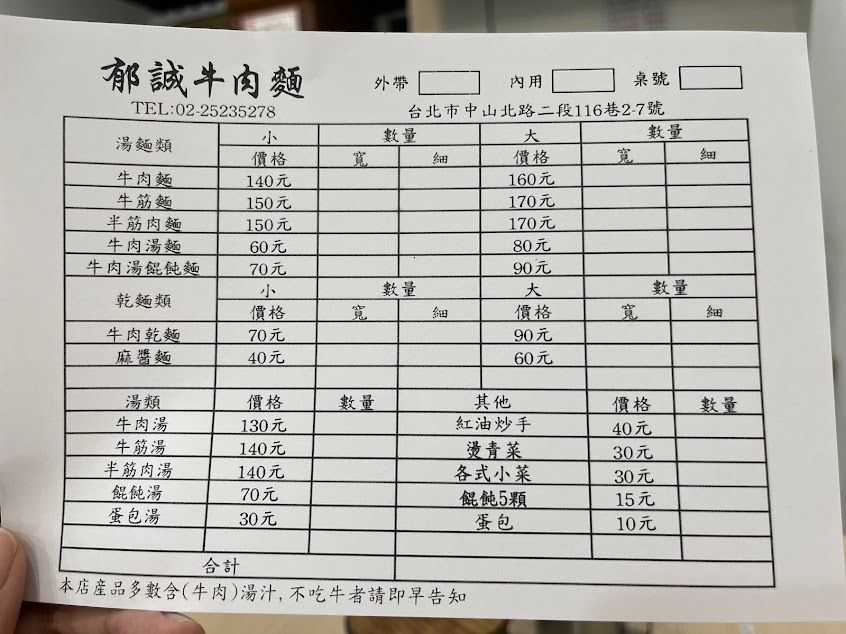 郁誠牛肉麵 外帶 內用 桌號
TEL:02-25235278 台北市中山北路二段116巷2-7號
湯麵類 小 數量 大 數量
價格 寬 細 價格 寬 細
牛肉麵 140元 160元
牛筋麵 150元 170元
半筋肉麵 150元 170元
牛肉湯麵 60元 80元
牛肉湯餛飩麵 70元 90元
乾麵類 小 數量 大 數量
價格 寬 細 價格 寬 細
牛肉乾麵 70元 90元
麻醬麵 40元 60元
湯類 價格 數量 其他 價格 數量
牛肉湯 130元 紅油炒手 40元
牛筋湯 140元 燙青菜 30元
半筋肉湯 140元 各式小菜 30元
餛飩湯 70元 餛飩5顆 15元
蛋包湯 30元 蛋包 10元
合計
本店產品多數含(牛肉)湯汁,不吃牛者請即早告知